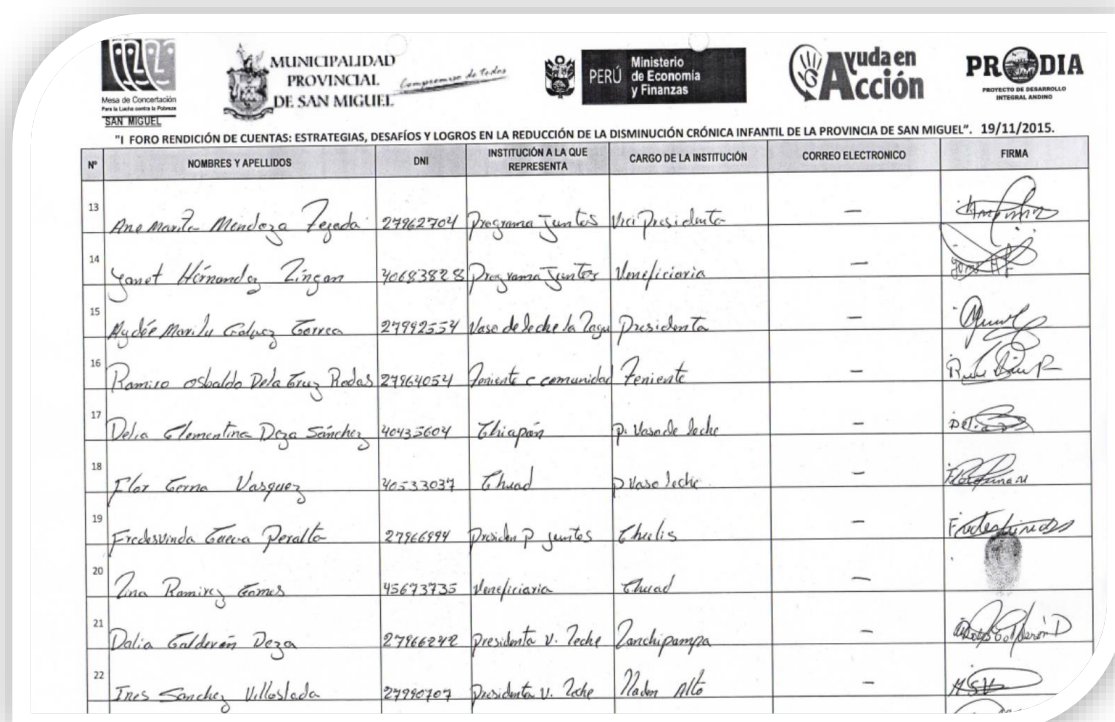 Mesa de Concertación
Para la Lucha contra la Pobreza
SAN MIGUEL
MUNICIPALIDAD
PROVINCIAL
DE SAN MIGUEL
Compromiso de todos
PERÚ
Ministerio
de Economía
y Finanzas
Ayuda en
Acción
PRODIA
PROYECTO DE DESARROLLO
INTEGRAL ANDINO
"I FORO RENDICIÓN DE CUENTAS: ESTRATEGIAS, DESAFÍOS Y LOGROS EN LA REDUCCIÓN DE LA DISMINUCIÓN CRÓNICA INFANTIL DE LA PROVINCIA DE SAN MIGUEL". 19/11/2015.
Nº NOMBRES Y APELLIDOS DNI INSTITUCIÓN A LA QUE REPRESENTA CARGO DE LA INSTITUCIÓN CORREO ELECTRONICO FIRMA
13 Ana Marita Mendoza Tejada 27962704 Programa Juntos Vici Presidenta —
14 Yanet Hérnandez Lingan 40683828 Programa Juntos Veneficiaria —
15 Aydée Marilu Galvez Correa 27992554 Vaso de leche la Presidenta —
16 Ramiro Osbaldo Dela Cruz Rodas 27964054 Teniente c comunidad Teniente —
17 Delia Clementina Deza Sánchez 40435604 Chiapón p. Vaso de leche —
18 Flor Cerna Vasquez 40533037 Chuad p Vaso leche —
19 Fredesvinda Peralta 27966994 Presiden P juntos —
20 Lina Ramirez Gomes 45673735 Veneficiaria Chuad —
21 Dalia Calderón Deza 27966242 presidenta V. Leche Lanchipampa —
22 Ines Sanchez Villoslada 27990707 Presidenta V. Leche Alto —